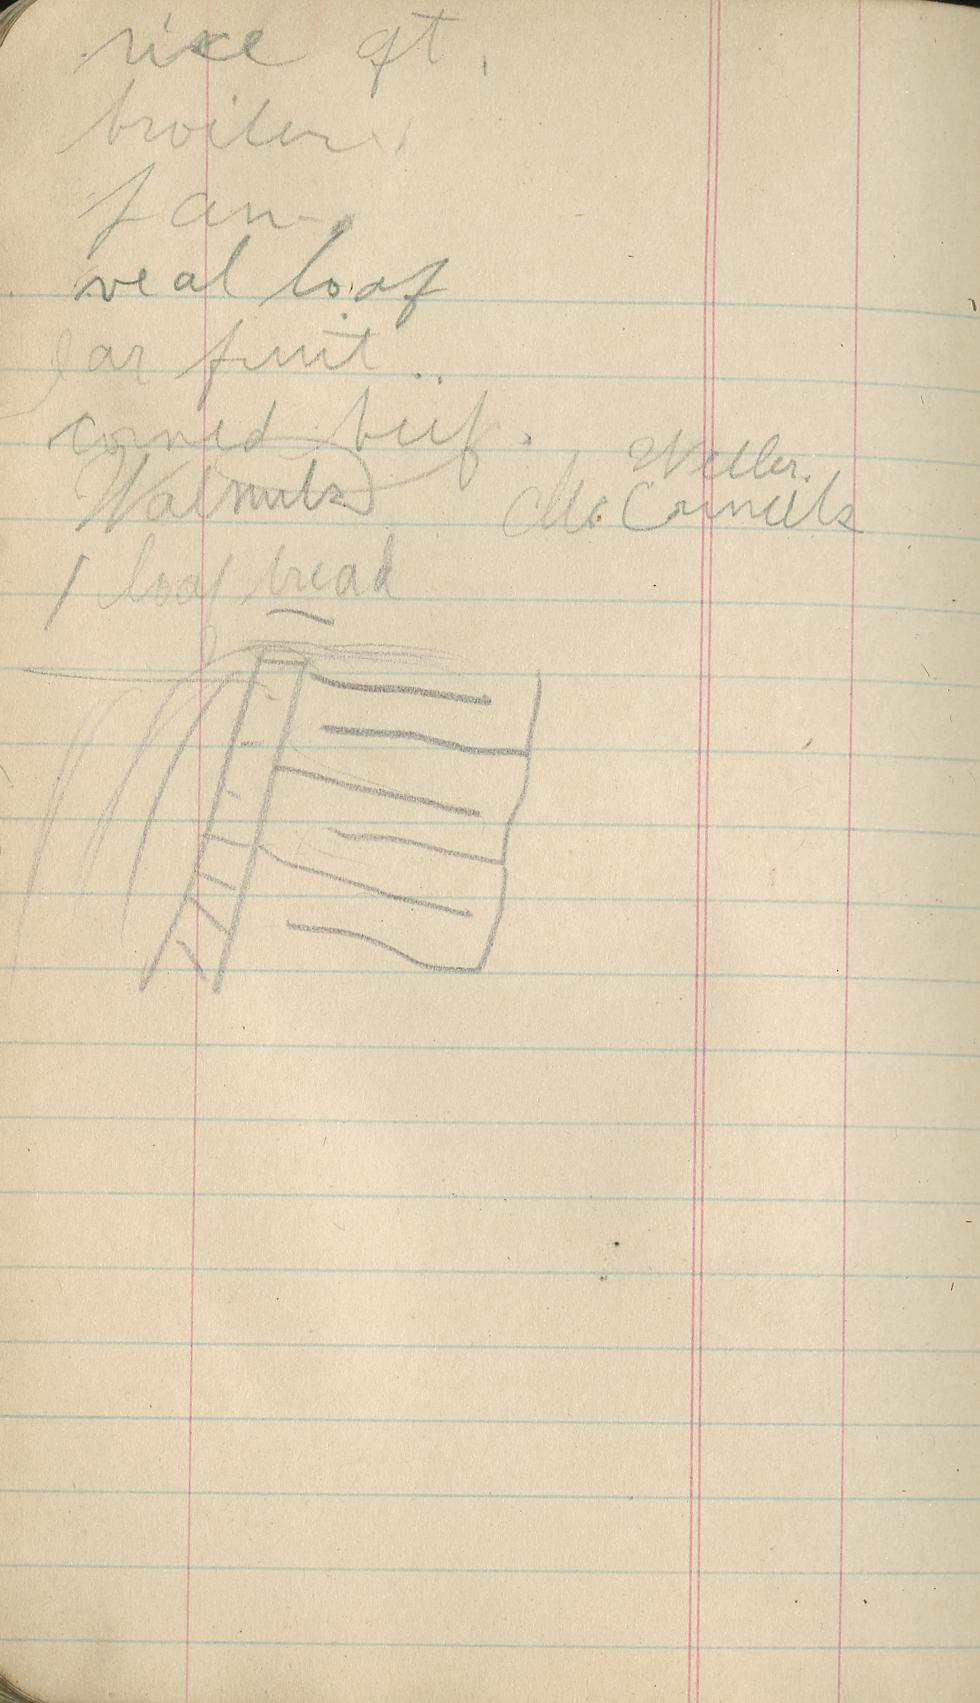 rice qt.
broiler
fan
veal loaf
Jar fruit
corned beef.
Walnuts
Weller.
1 loaf bread